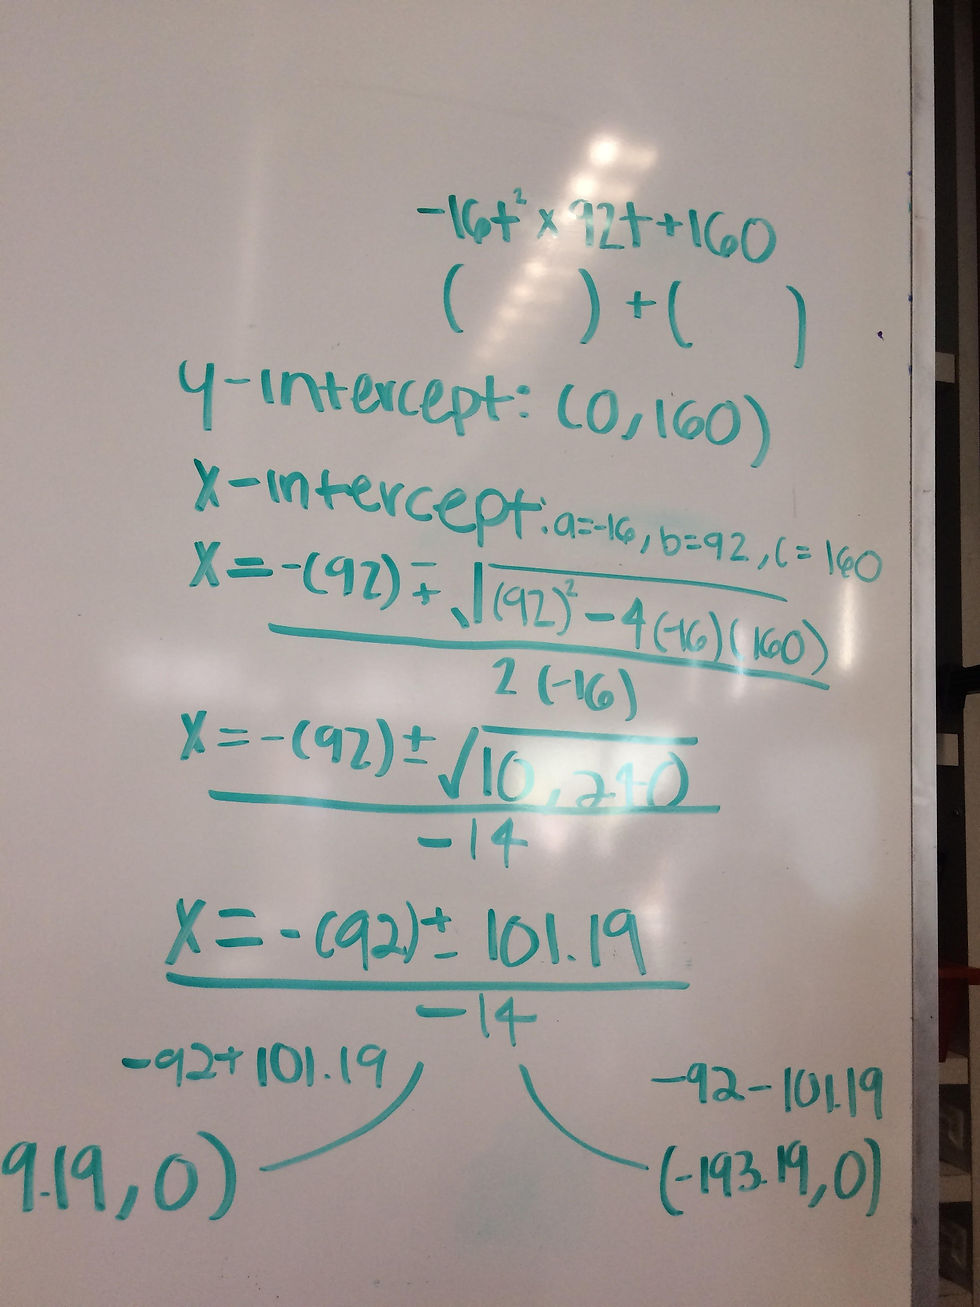 -16t² x 92t+160
( ) + ( )
y-intercept: (0,160)
x-intercept: a=-16, b=92, c=160
x=-(92) ∓ √(92)² - 4(-16)(160)
2(-16)
x=-(92) ± √10,240
-14
x=-(92) ± 101.19
-14
-92+101.19
-92-101.19
9.19,0)
(-193.19,0)